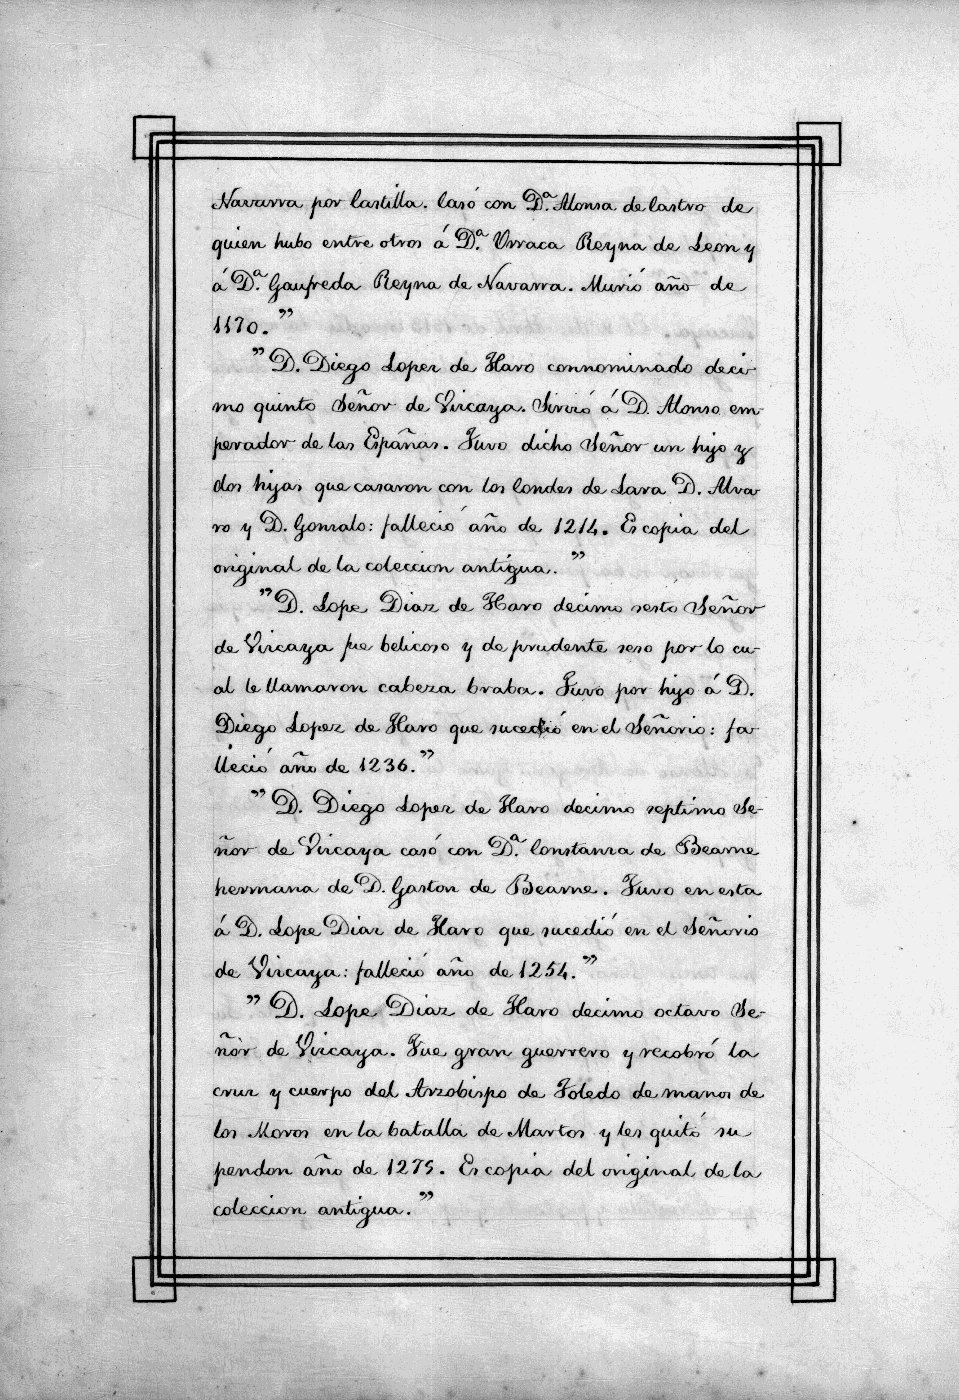 Navarra por Castilla. Casó con D.ª Alonsa de Castro de
quien hubo entre otros á D.ª Urraca Reyna de Leon y
á D.ª Gaufreda Reyna de Navarra. Murió año de
1170."
"D. Diego Lopez de Haro connominado deci-
mo quinto Señor de Vizcaya. Sirvió á D. Alonso em-
perador de las Españas. Tuvo dicho Señor un hijo y
dos hijas que casaron con los Condes de Lara D. Alva-
ro y D. Gonzalo: falleció año de 1214. Es copia del
original de la coleccion antigua."
"D. Lope Diaz de Haro decimo sesto Señor
de Vizcaya fue belicoso y de prudente seso por lo cu-
al le llamaron cabeza braba. Tuvo por hijo á D.
Diego Lopez de Haro que sucedió en el Señorio: fa-
lleció año de 1236."
"D. Diego Lopez de Haro decimo septimo Se-
ñor de Vizcaya casó con D.ª Constanza de Bearne
hermana de D. Gaston de Bearne. Tuvo en esta
á D. Lope Diaz de Haro que sucedió en el Señorio
de Vizcaya: falleció año de 1254."
"D. Lope Diaz de Haro decimo octavo Se-
ñor de Vizcaya. Fue gran guerrero y recobró la
cruz y cuerpo del Arzobispo de Toledo de manos de
los Moros en la batalla de Martos y les quitó su
pendon año de 1275. Es copia del original de la
coleccion antigua."